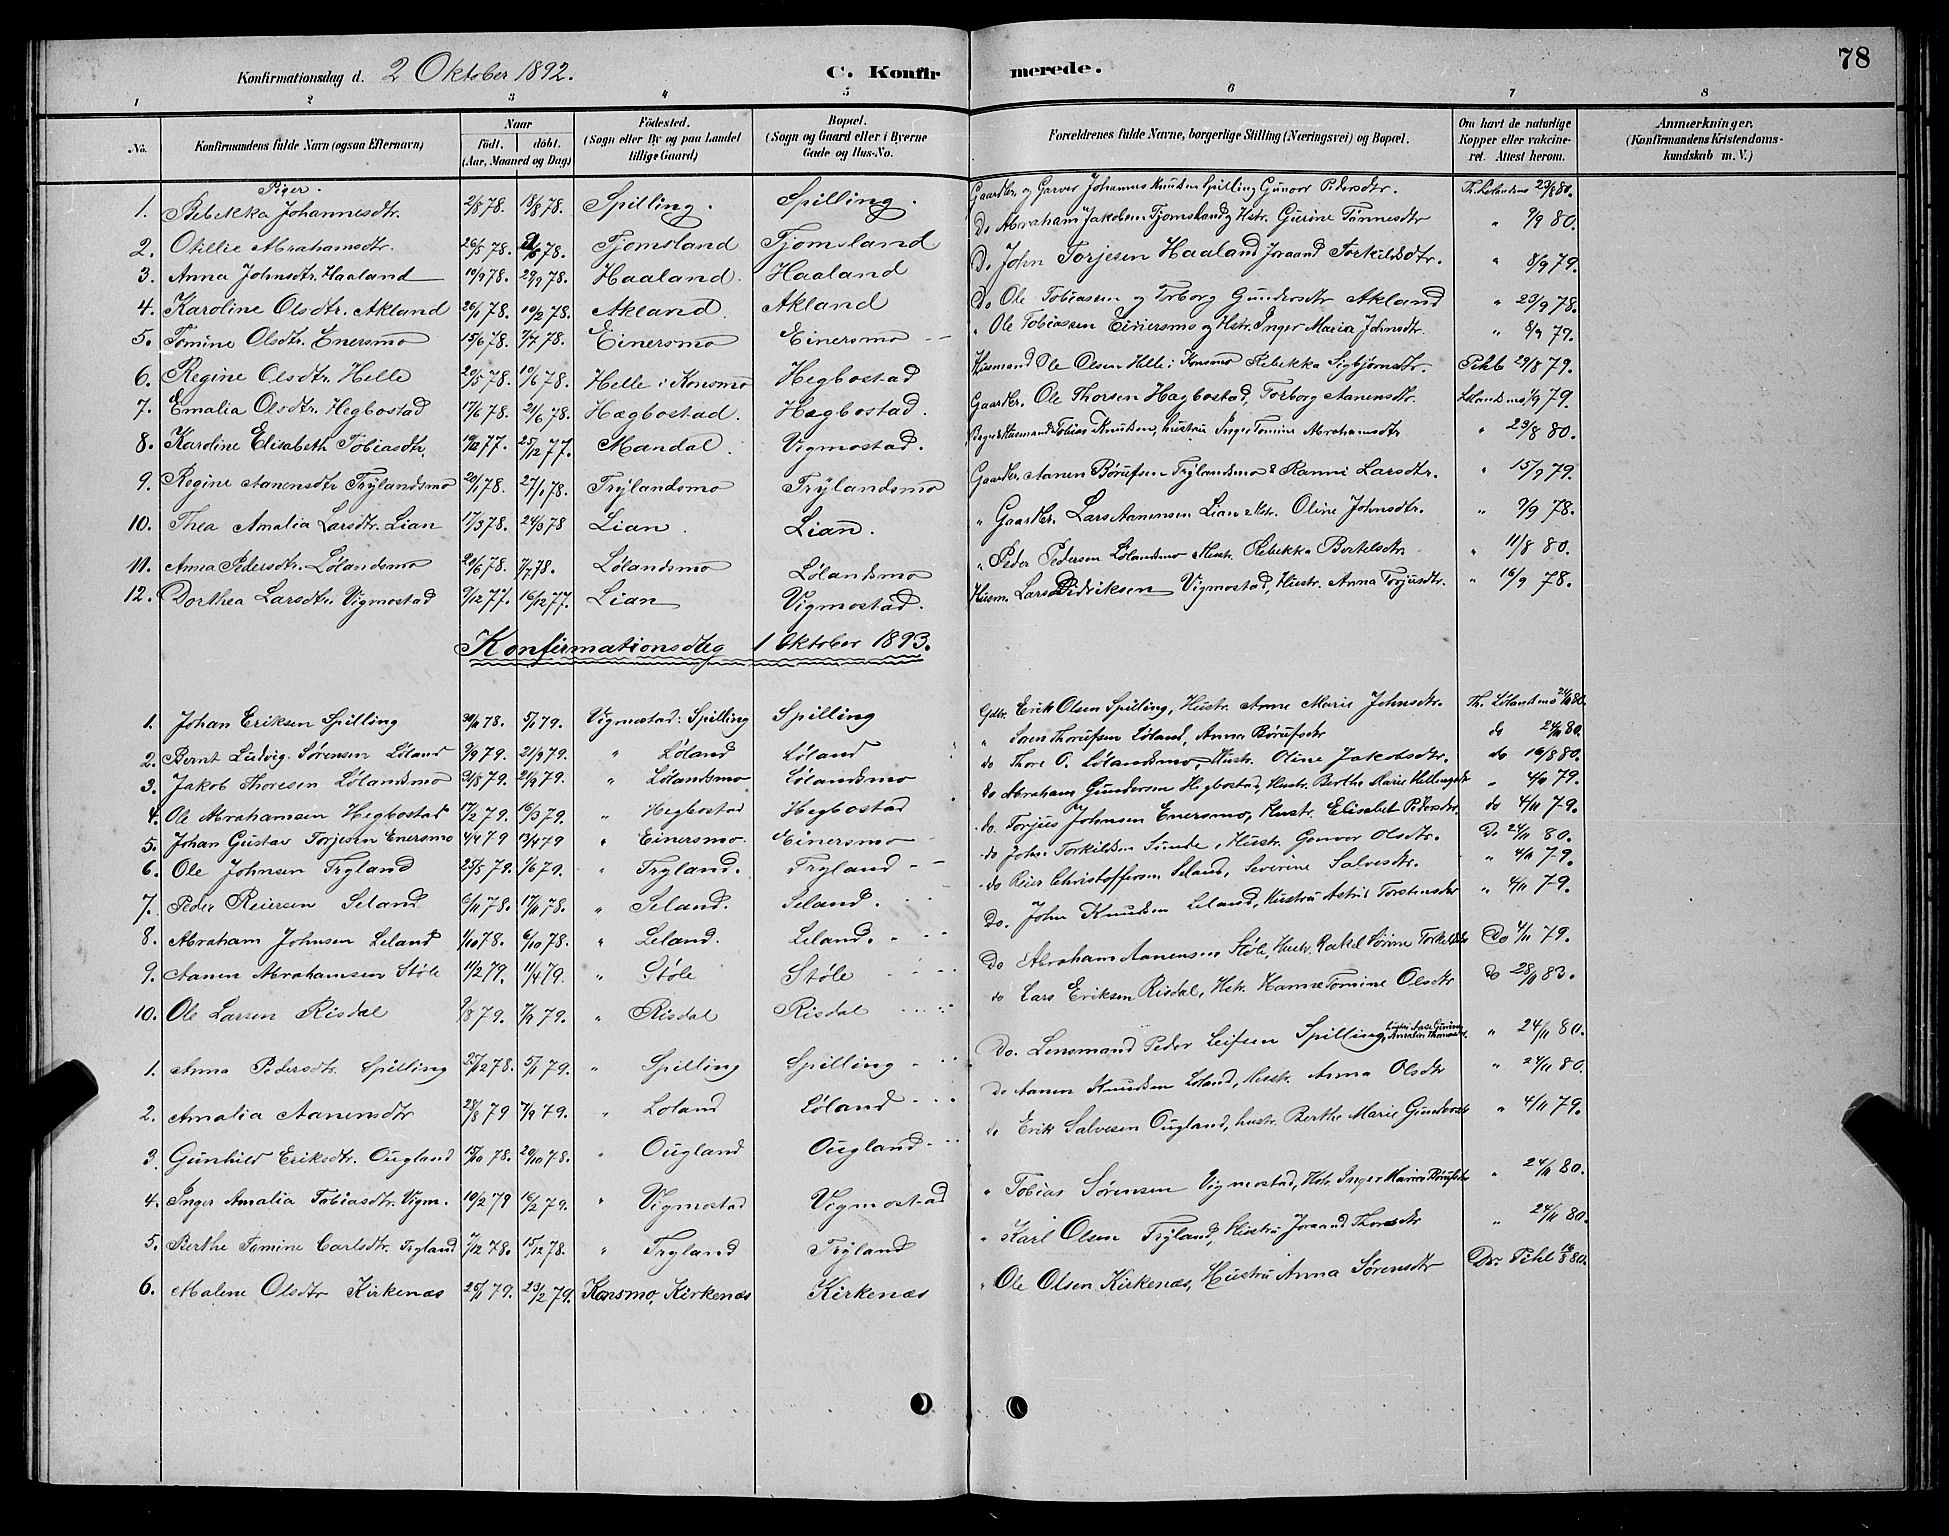 78
Konfirmationsdag d. 2 Oktober 1892. C. Konfirmerede.
1 2 3 4 5 6 7 8
No. Konfirmandens fulde Navn (ogsaa Efternavn) Naar født. døbt. (Aar, Maaned og Dag) Fødested. (Sogn eller By og paa Landet tillige Gaard) Bopæl. (Sogn og Gaard eller i Byerne Gade og Hus-No. Forældrenes fulde Navne, borgerlige Stilling (Næringsvei) og Bopæl. Om havt de naturlige Kopper eller vakcineret. Attest herom. Anmærkninger. (Konfirmandens Kristendomskundskab m. V.)
Piger.
1. Rebekka Johannesdtr. 2/8 78. 18/8 78. Spilling. Spilling. Gaardbr. og Garver Johannes Knudsen Spilling Gunvor Pedersdtr. Th. Lølandsmo 23/8 80.
2. Otillie Abrahamsdtr. 26/5 78. /6 78. Tjomsland Tjomsland Do Abraham Jakobsen Tjomsland og Hstr. Gurine Tønnesdtr " 9/9 80.
3. Anna Johnsdtr. Haaland 10/9 78. 29/9 78. Haaland. Haaland D. John Torjesen Haaland Joraand Torkildsdtr. " 8/9 79.
4. Karoline Olsdtr. Akland 26/1 78. 10/2 78. Akland. Akland Do Ole Tobiassen og Torborg Gundersdtr Akland " 23/9 78.
5. Tomine Olsdtr. Enersmo 15/6 78. 7/7 78. Einersmo Einersmo " Ole Tobiassen Einersmo og Hstr. Inger Maria Johnsdtr. " 8/9 79.
6. Regine Olsdtr. Helle 20/5 78. 10/6 78. Helle i Konsmo Hegbostad Husmand Ole Olsen Helle i Konsmo Rebekka Sigbjørnsdtr. Pihl 29/8 79.
7. Emalia Olsdtr. Hegbostad 17/6 78. 21/6 78. Hægbostad. Hægbostad. Gaardbr. Ole Thorsen Hægbostad, Torborg Aanensdtr. Lølandsmo 1/9 79.
8. Karoline Elisabeth Tobiasdtr. 19/10 77. 25/12 77. Mandal. Vigmostad. Husmand Tobias Knudsen, hustru Inger Tomine Abrahamsdtr " 23/8 80.
9. Regine Aanensdtr Trylandsmo 20/1 78. 27/1 78. Trylandsmo Trylandsmo Gaardbr. Aanen Børufsen Trylandsmo & Ranni Larsdtr. " 15/9 79.
10. Thea Amalia Larsdtr. Lian 17/3 78. 24/3 78 Lian. Lian. " Gaardbr. Lars Aanensen Lian Hstr. Oline Johnsdtr. " 9/9 78.
11. Anna Pedersdtr. Lølandsmo 20/6 78. 7/7 78. Lølandsmo Lølandsmo " Peder Pedersen Lølandsmo Hustr. Rebekka Bertelsdtr " 11/8 80.
12. Dorthea Larsdtr. Vigmostad 9/12 77. 16/12 77. Lian Vigmostad. Husm. Lars Didriksen Vigmostad, Hustr. Anna Torjusdtr. " 16/9 78.
Konfirmationsdag 1 Oktober 1893.
1. Johan Eriksen Spilling 30/11 78. 5/1 79. Vigmostad: Spilling Spilling Gdbr. Erik Olsen Spilling, Hustr. Anne Marie Johnsdtr. Th. Lølandsmo 24/11 80.
2. Bernt Ludvig Sørensen Løland 9/9 79. 21/9 79. " Løland Løland " Søren Thorufsen Løland, Anna Børufsdtr do 24/11 80.
3. Jakob Thoresen Lølandsmo 31/8 79. 21/9 79. " Lølandsmo Lølandsmo do Thore O. Lølandsmo, Hustr. Oline Jakobsdtr. do 16/8 80.
4. Ole Abrahamsen Hegbostad 17/2 79. 16/3 79. " Hegbostad Hegbostad do Abraham Gundersen Hegbostad, Hustr. Berthe Marie " 4/11 79.
5. Johan Gustav Torjesen Enersmo 4/4 79 13/4 79 " Einersmo. Einersmo do. Torjus Johnsen Enersmo, Hustr. Elisabet Pedersdtr. do 4/11 79.
6. Ole Johnsen Tryland 25/5 79. 1/6 79. " Tryland. Tryland do John Torkildsen Sunde, Hustr. Gunvor Olsdtr. Do 24/11 80.
7. Peder Reiersen Seland. 6/11 78. 17/11 78. " Seland. Seland. do Reier Christoffersen Seland, Severine Salvesdtr. " 4/11 79.
8. Abraham Johnsen Leland 1/10 78. 6/10 78. " Leland. Leland. Do. John Knudsen Leland, Hustru Astri Torstensdtr " 4/11 79.
9. Aanen Abrahamsen Støle 11/2 79. 11/4 79. " Støle Støle Do Abraham Aanensen Støle, Hustr. Rakel Sørine Torkildsdtr Do 4/11 79.
10. Ole Larsen Risdal 9/8 79. 7/9 79. " Risdal Risdal do Lars Eriksen Risdal, Hstr. Hanne Tomine Olsdtr Do 28/11 83.
1. Anna Pedersdtr. Spilling 25/12 78. 5/1 79. " Spilling Spilling Do. Lensmand Peder Leifsen Spilling, " 24/11 80.
2. Amalia Aanensdtr 28/8 79 7/9 79. " Løland Løland do Aanen Knudsen Løland, Hustr. Anna Olsdtr " 24/11 80.
3. Gunhild Eriksdtr. Ougland 15/10 78. 20/10 78. " Ougland Ougland do Erik Salvesen Ougland, hustr. Berthe Marie Gundersdtr " 4/11 79.
4. Inger Amalia Tobiasdtr. Vigm. 10/2 79 16/2 79. " Vigmostad Vigmostad " Tobias Sørensen Vigmostad, Hstr. Inger Marie Børufsdtr " 24/11 80.
5. Berthe Tomine Carlsdtr. Tryland 7/12 78. 15/12 78. " Tryland Tryland " Karl Olsen Tryland, Hustru Joraand Thoresdtr " 24/11 80.
6. Malene Olsdtr Kirkenæs 25/1 79. 23/2 79. Konsmo, Kirkenæs Kirkenæs " Ole Olsen Kirkenæs, Hustru Anna Sørensdtr Dr. Pihl 16/8 80.